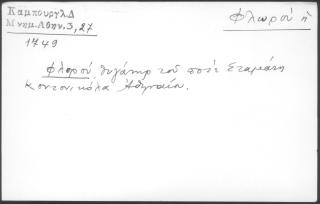 Καμπούρογλ.Δ
Μνημ.Αθην.3,27
Φλωρού ή
1749
Φλορού, θυγάτηρ τοῦ ποτέ Σταμάτη
Κοντονικόλα Ἀθηναίου.